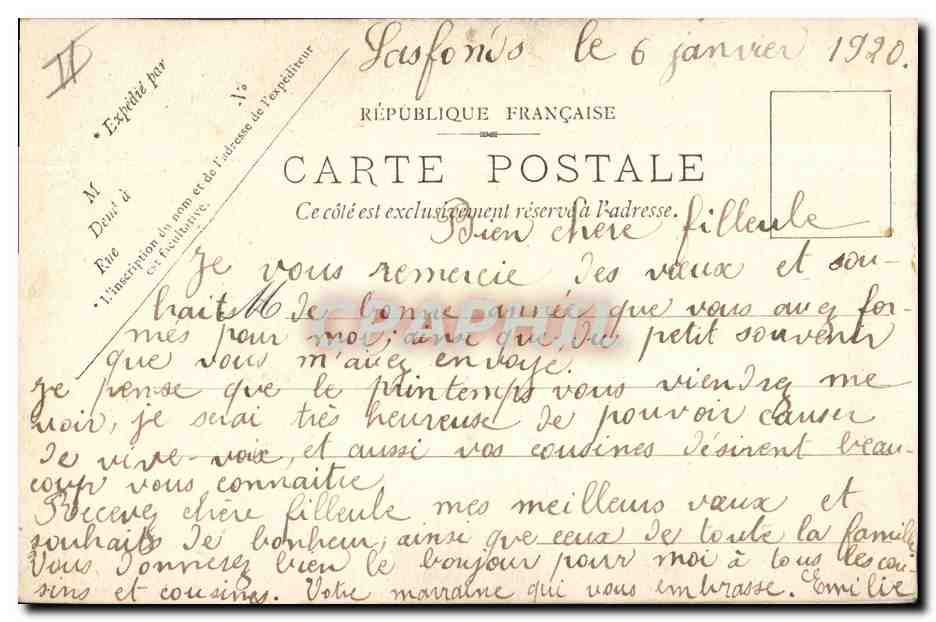 II
Lasfonds le 6 janvier 1920.
* Expédié par
M
No
Demt à
Rue
* L'inscription du nom et de l'adresse de l'expéditeur
est facultative.
RÉPUBLIQUE FRANÇAISE
CARTE POSTALE
Ce côté est exclusivement réservé à l'adresse.
Bien chère filleule
Je vous remercie des vœux et sou-
haits de bonne année que vous avez for-
més pour moi, ainsi que du petit souvenir
que vous m'avez envoyé.
Je pense que le printemps vous viendrez me
voir, je serai très heureuse de pouvoir causer
de vive-voix, et aussi vos cousines désirent beau-
coup vous connaitre
Recevez chère filleule mes meilleurs vœux et
souhaits de bonheur, ainsi que ceux de toute la famille
Vous donnerez bien le bonjour pour moi à tous les cou-
sins et cousines. Votre marraine qui vous embrasse. Emilie
CPAPHIL